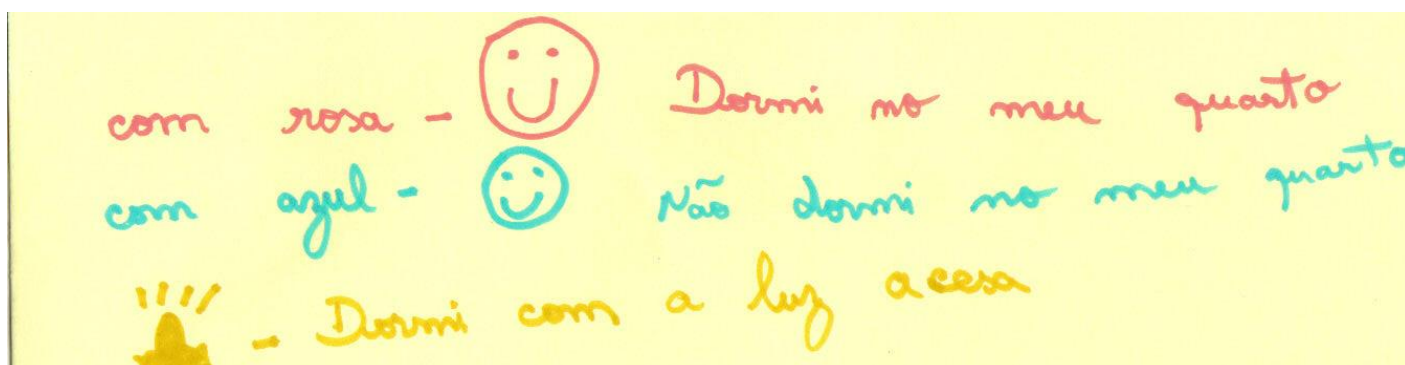 com rosa - Dormi no meu quarto
com azul - Não dormi no meu quarto
- Dormi com a luz acesa